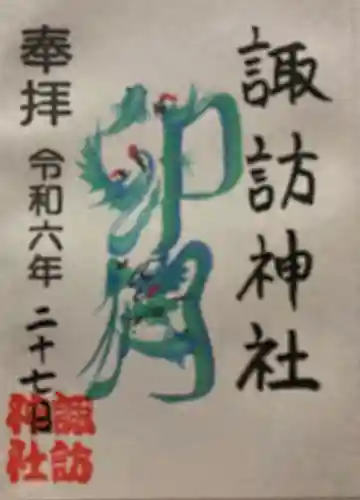 諏訪神社
卯月
奉拝
令和六年 二十七日
諏訪
神社